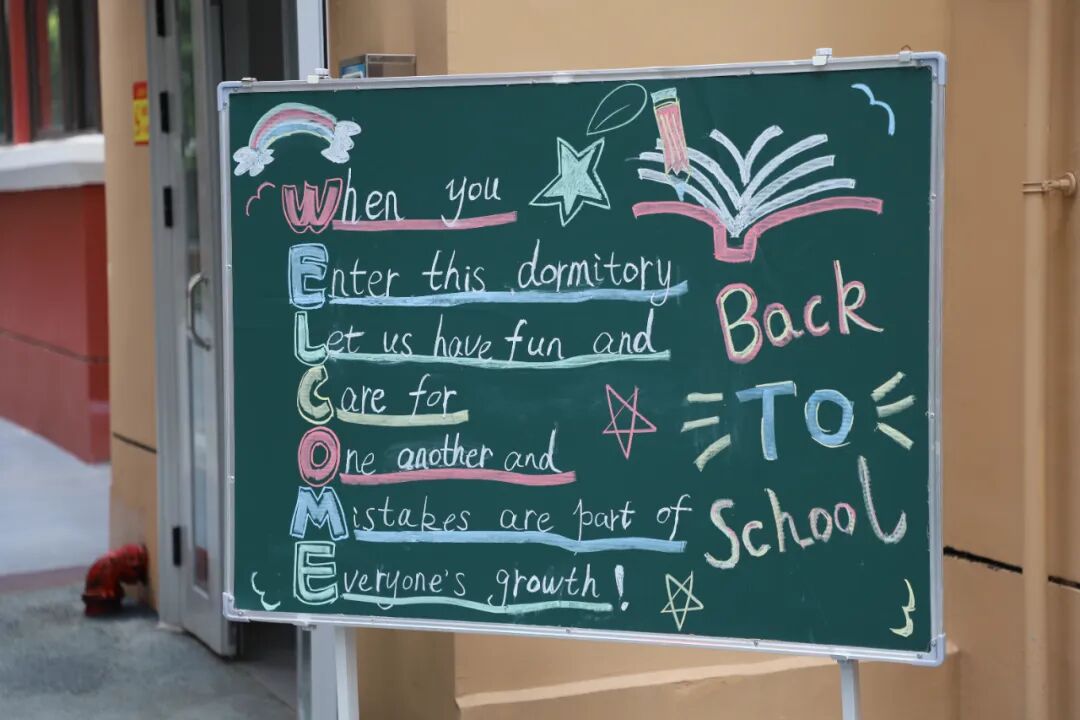 When you
Enter this dormitory
Let us have fun and
Care for
One another and
Mistakes are part of
Everyone's growth!
Back
TO
School